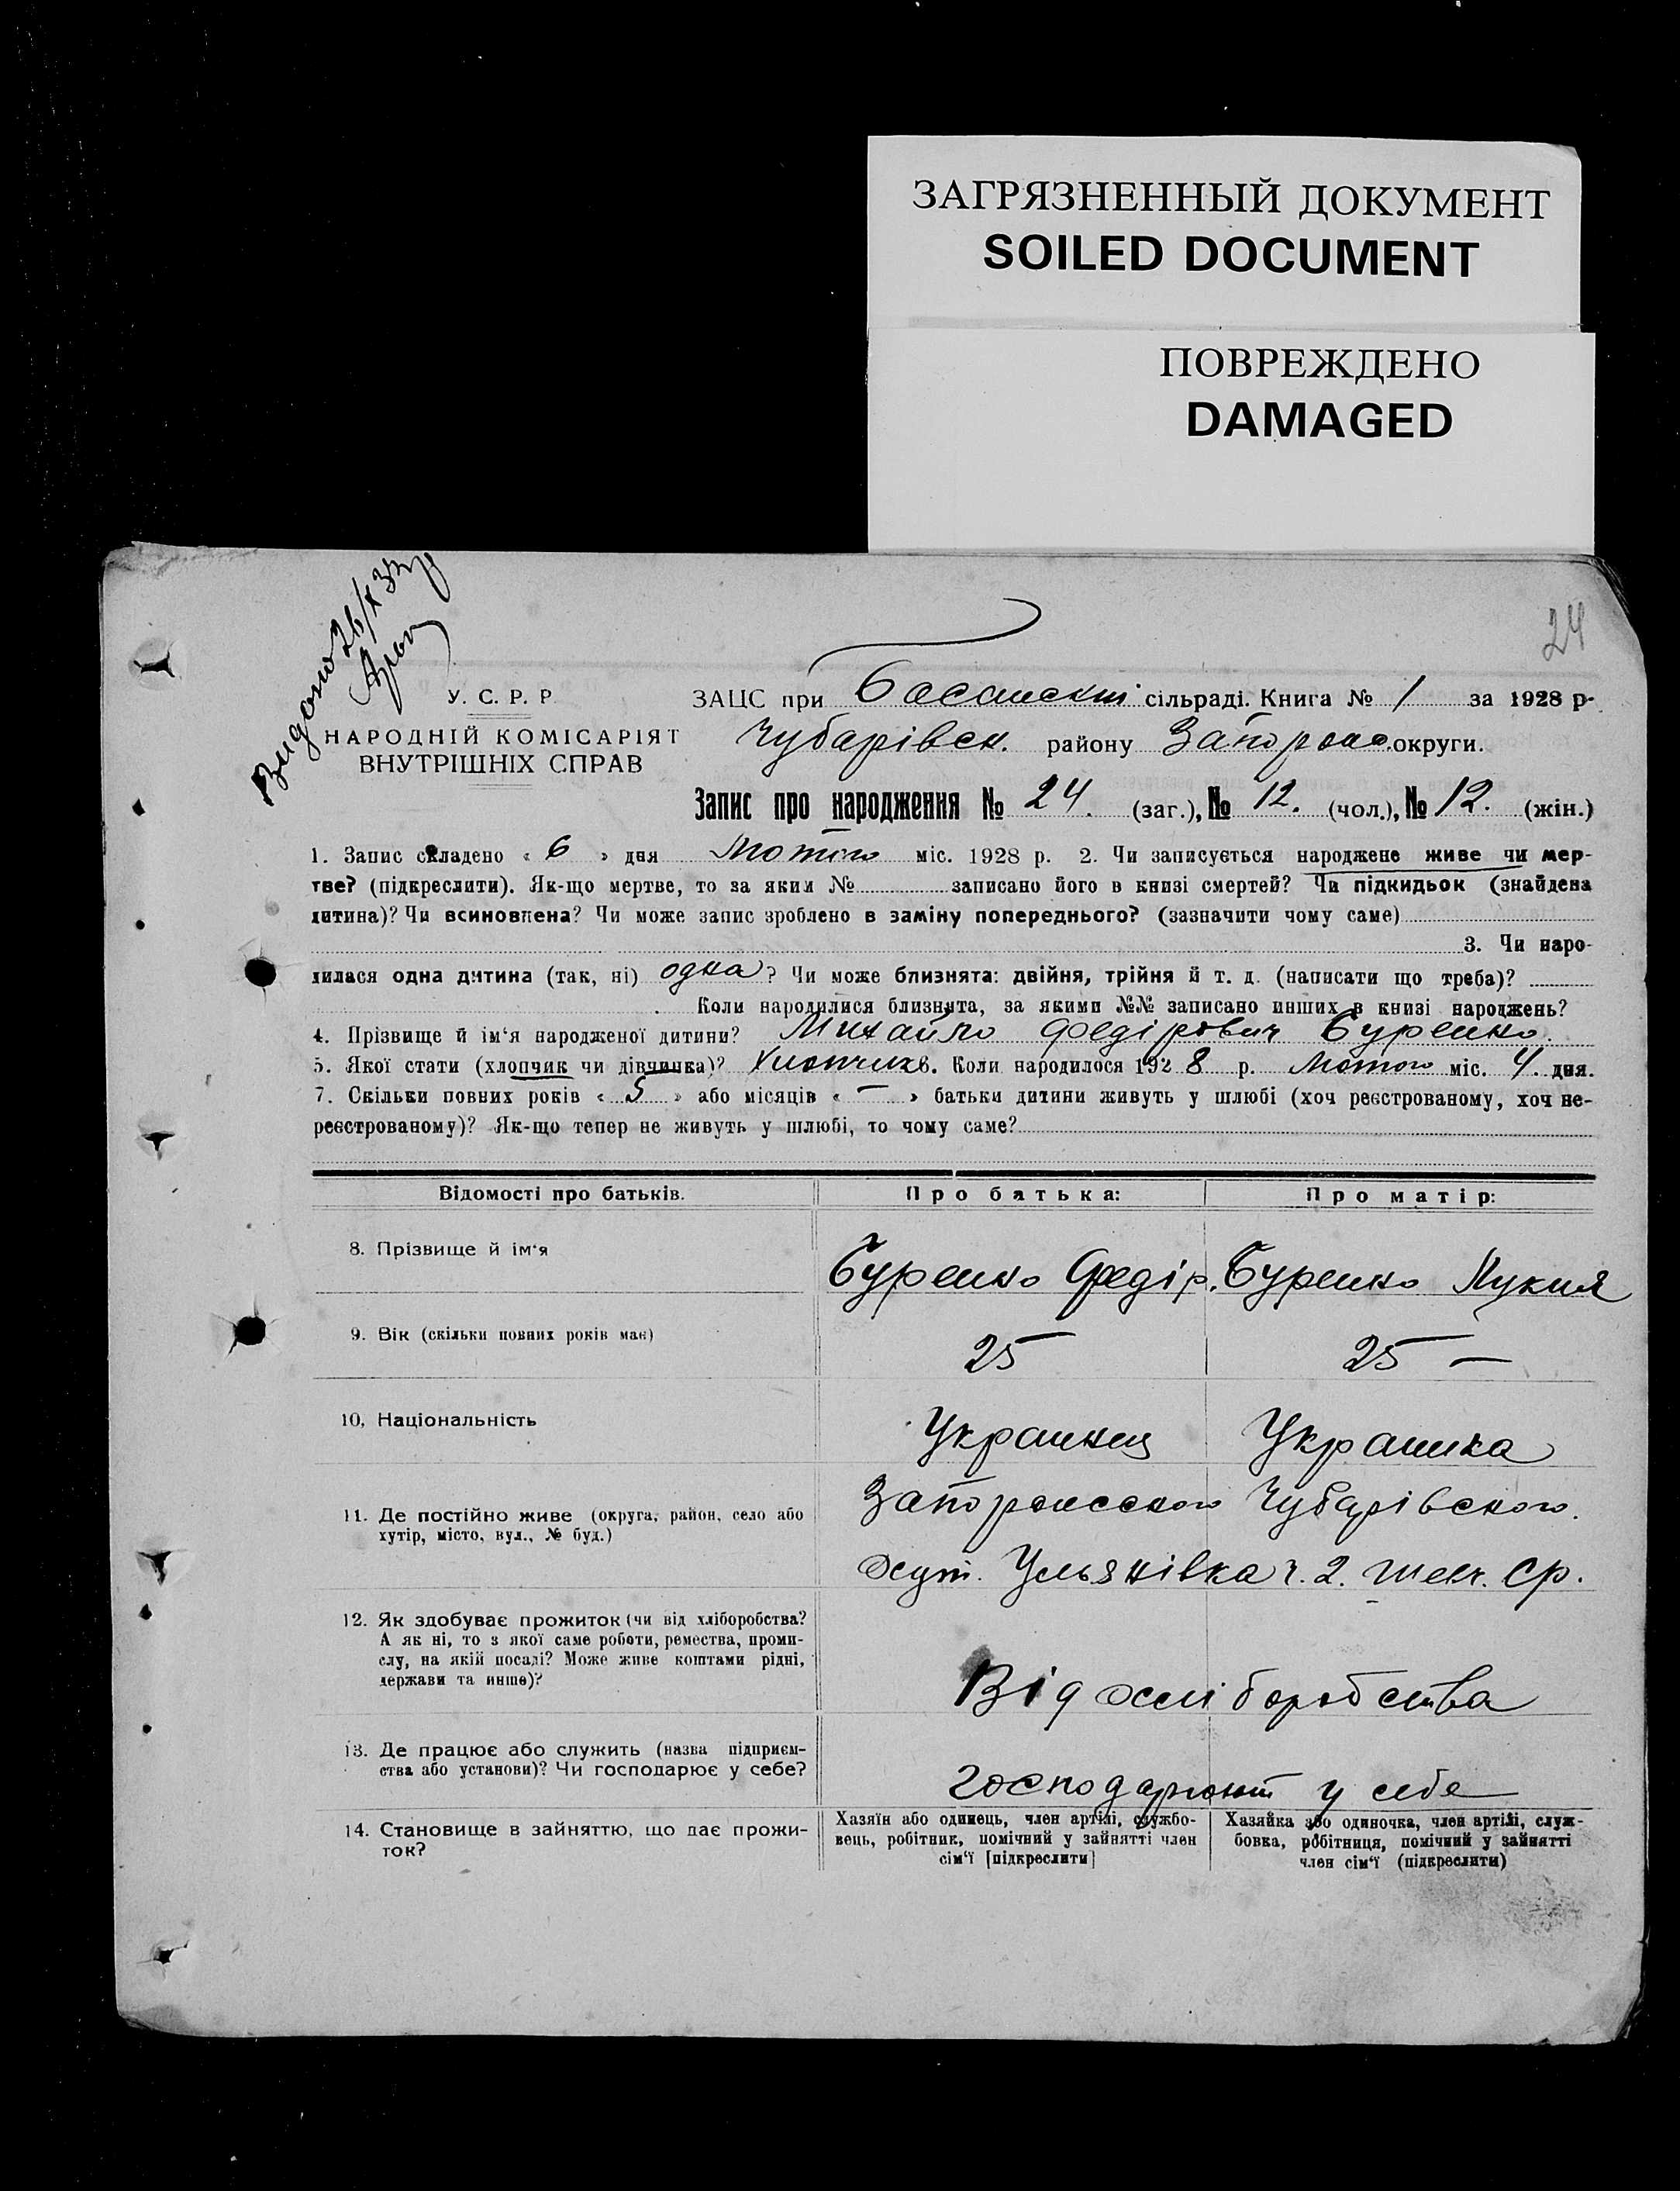 ЗАГРЯЗНЕННЫЙ ДОКУМЕНТ
SOILED DOCUMENT
ПОВРЕЖДЕНО
DAMAGED
24
Видано 26/X 33
У. С. Р. Р.
НАРОДНІЙ КОМІСАРІЯТ
ВНУТРІШНІХ СПРАВ
ЗАЦС при Басанскій сільраді. Книга № 1 за 1928 р.
Чубарівск. району Запорож. округи.
Запис про народження № 24. (заг.), № 12. (чол.), № 12. (жін.)
1. Запис складено « 6 » дня Лютого міс. 1928 р. 2. Чи записується народжене живе чи мер-
тве? (підкреслити). Як-що мертве, то за яким № записано його в книзі смертей? Чи підкидьок (знайдена
дитина)? Чи всиновлена? Чи може запис зроблено в заміну попереднього? (зазначити чому саме)
3. Чи наро-
дилася одна дитина (так, ні) одна? Чи може близнята: двійня, трійня й т. д. (написати що треба)?
Коли народилися близнята, за якими №№ записано инших в книзі народжень?
4. Прізвище й ім'я народженої дитини? Михайло Федірович Буренко.
5. Якої стати (хлопчик чи дівчинка)? Хлопчик 6. Коли народилося 1928 р. Лютого міс. 4. дня.
7. Скільки повних років « 5 » або місяців « — » батьки дитини живуть у шлюбі (хоч реєстрованому, хоч не-
реєстрованому)? Як-що тепер не живуть у шлюбі, то чому саме?
Відомості про батьків. Про батька: Про матір:
8. Прізвище й ім'я Буренко Федір. Буренко Лукия
9. Вік (скільки повних років має) 25 25 —
10. Національність Украинец Украинка
11. Де постійно живе (округа, район, село або
хутір, місто, вул., № буд.)
Запорожского Чубарівского.
хут. Ульянівка ч. 2. Ср.
12. Як здобуває прожиток (чи від хліборобства?
А як ні, то з якої саме роботи, ремества, проми-
слу, на якій посаді? Може живе коштами рідні,
держави та инше)?
Від хліборобства
13. Де працює або служить (назва підприєм-
ства або установи)? Чи господарює у себе?
господарюют у себе
14. Становище в зайняттю, що дає прожи-
ток?
Хазяїн або одинець, член артілі, службо-
вець, робітник, помічний у зайнятті член
сім'ї [підкреслити]
Хазяйка або одиночка, член артілі, служ-
бовка, робітниця, помічний у зайнятті
член сім'ї (підкреслити)